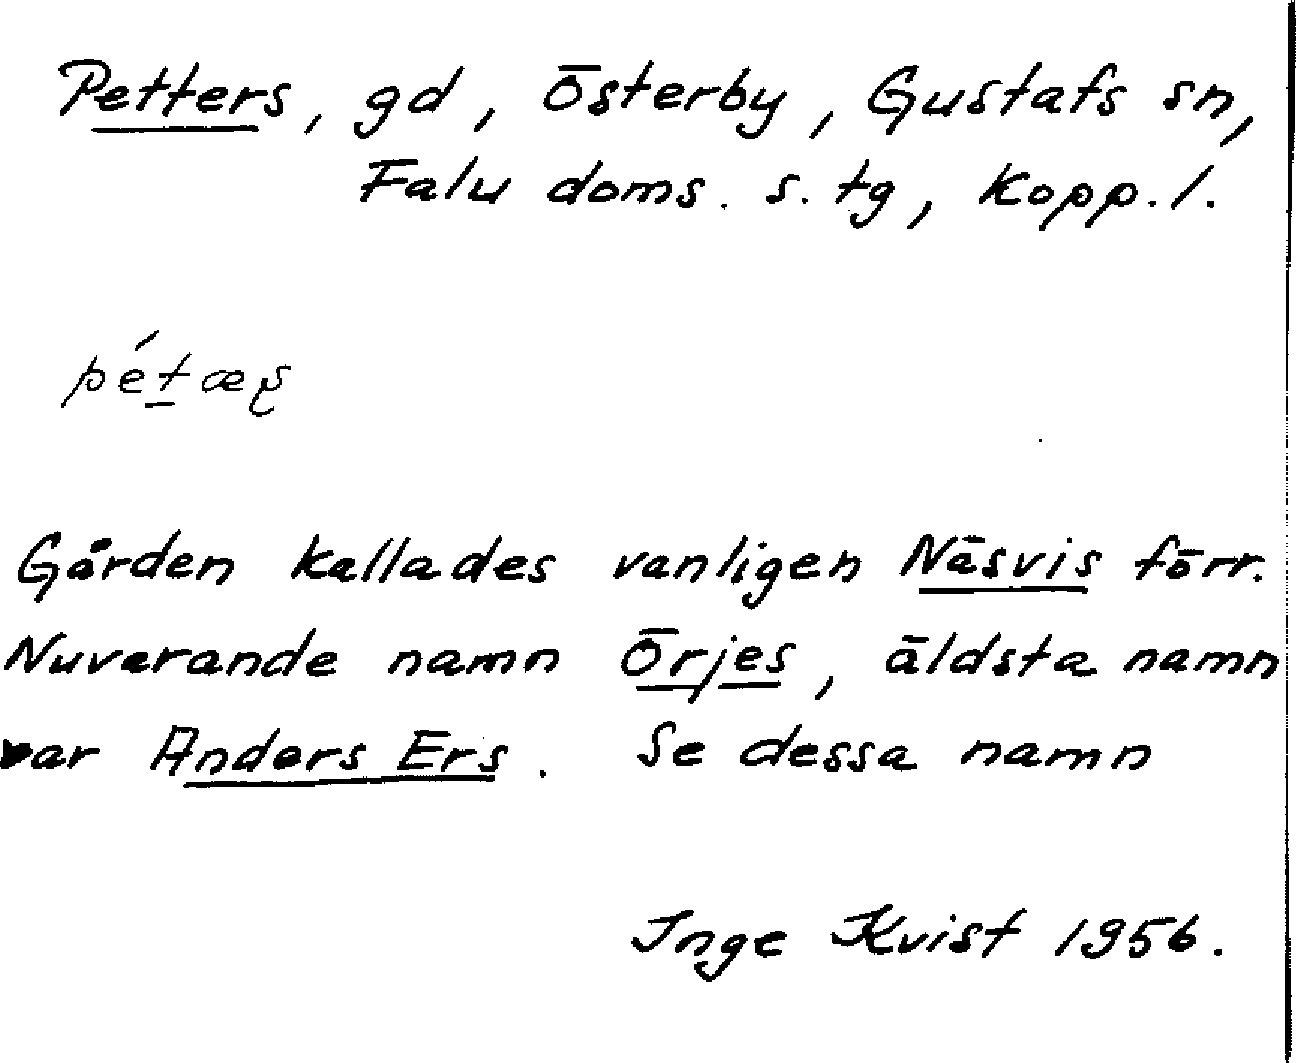 Petters, gd, Österby, Gustafs sn,
Falu doms. s. tg, Kopp. l.
pét̲æʂ
Gården kallades vanligen Näsvis förr.
Nuvarande namn Örjes, äldsta namn
var Anders Ers. Se dessa namn
Inge Kvist 1956.